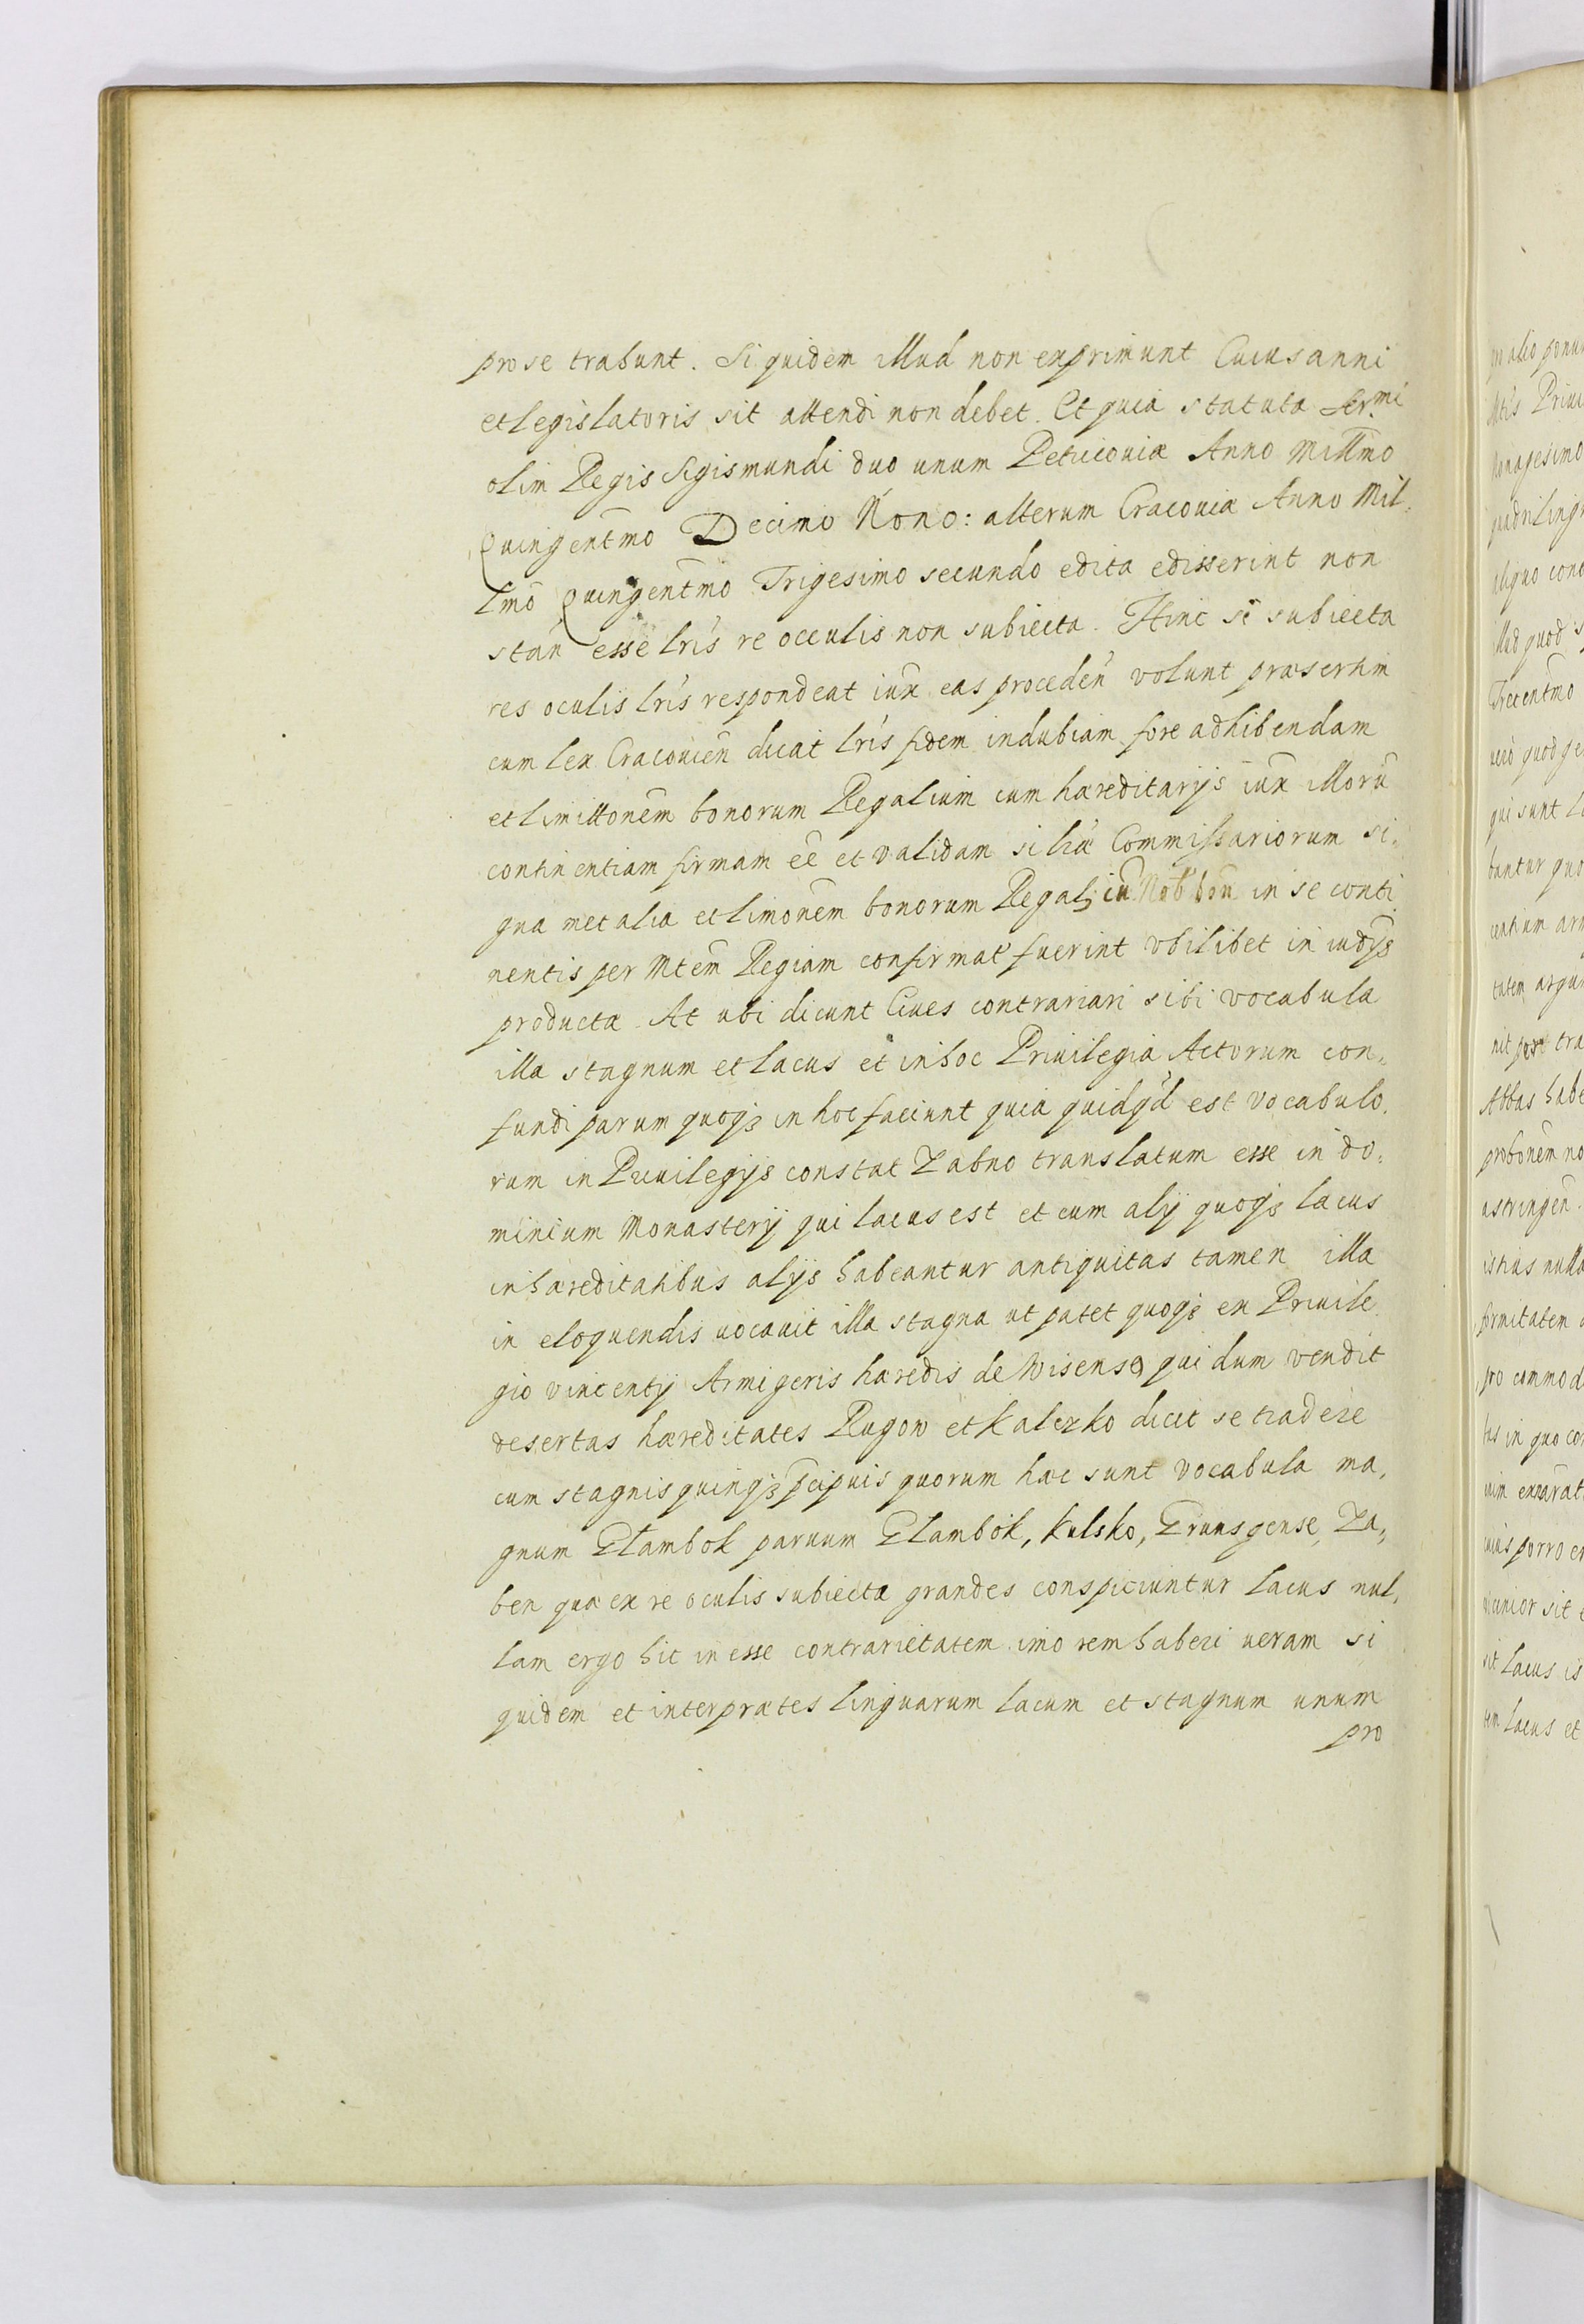 pro se trahunt. Si quidem illud non exprimunt Cuius anni
et legislatoris sit attendi non debet. Et quia statuta Ser.mi
olim Regis Sigismundi duo unum Petricouiæ Anno Millmo
Quingentmo Decimo Nono: alterum Cracouiæ Anno Mil,
lmo Quingentmo Trigesimo secundo edita edisserint non
stan esse lris re occulis non subiecta. Hinc si subiecta
res oculis lris respondeat iux eas proceden volunt præsertim
cum lex Cracouien dicat lris fidem indubiam fore adhibendam
et limittonem bonorum Regalium cum hæreditarijs iux illoru
continentiam firmam ee et validam si lræ Commissariorum si,
gna metalia et limonem bonorum Regal, cu Nob bon in se conti
nentis per Mtem Regiam confirmat fuerint vbilibet in iudijs
producta. At ubi dicunt Ciues contrariari sibi vocabula
illa stagnum et lacus et in hoc Priuilegia Actorum con,
fundi parum quoqȝ in hoc faciunt quia quidqd est vocabulo,
rum in Priuilegijs constat Zabno translatum esse in do,
minium Monasterij qui lacus est et cum alij quoqȝ lacus
in hæreditatibus alijs habeantur antiquitas tamen illa
in eloquendis uocauit illa stagna ut patet quoqȝ ex Priuile
gio vincentij Armigeris hæredis de Wisensa qui dum vendit
desertas hæreditates Rugow et Kalezko dicit se tradere
cum stagnis quinqȝ pcipuis quorum hæc sunt vocabula ma,
gnum Glambok paruum Glambok, Kulsko, Grunsgense, Za,
ben quæ ex re oculis subiecta grandes conspiciuntur lacus nul,
lam ergo hic inesse contrarietatem imo rem haberi ueram si
quidem et interprætes linguarum lacum et stagnum unum
pro